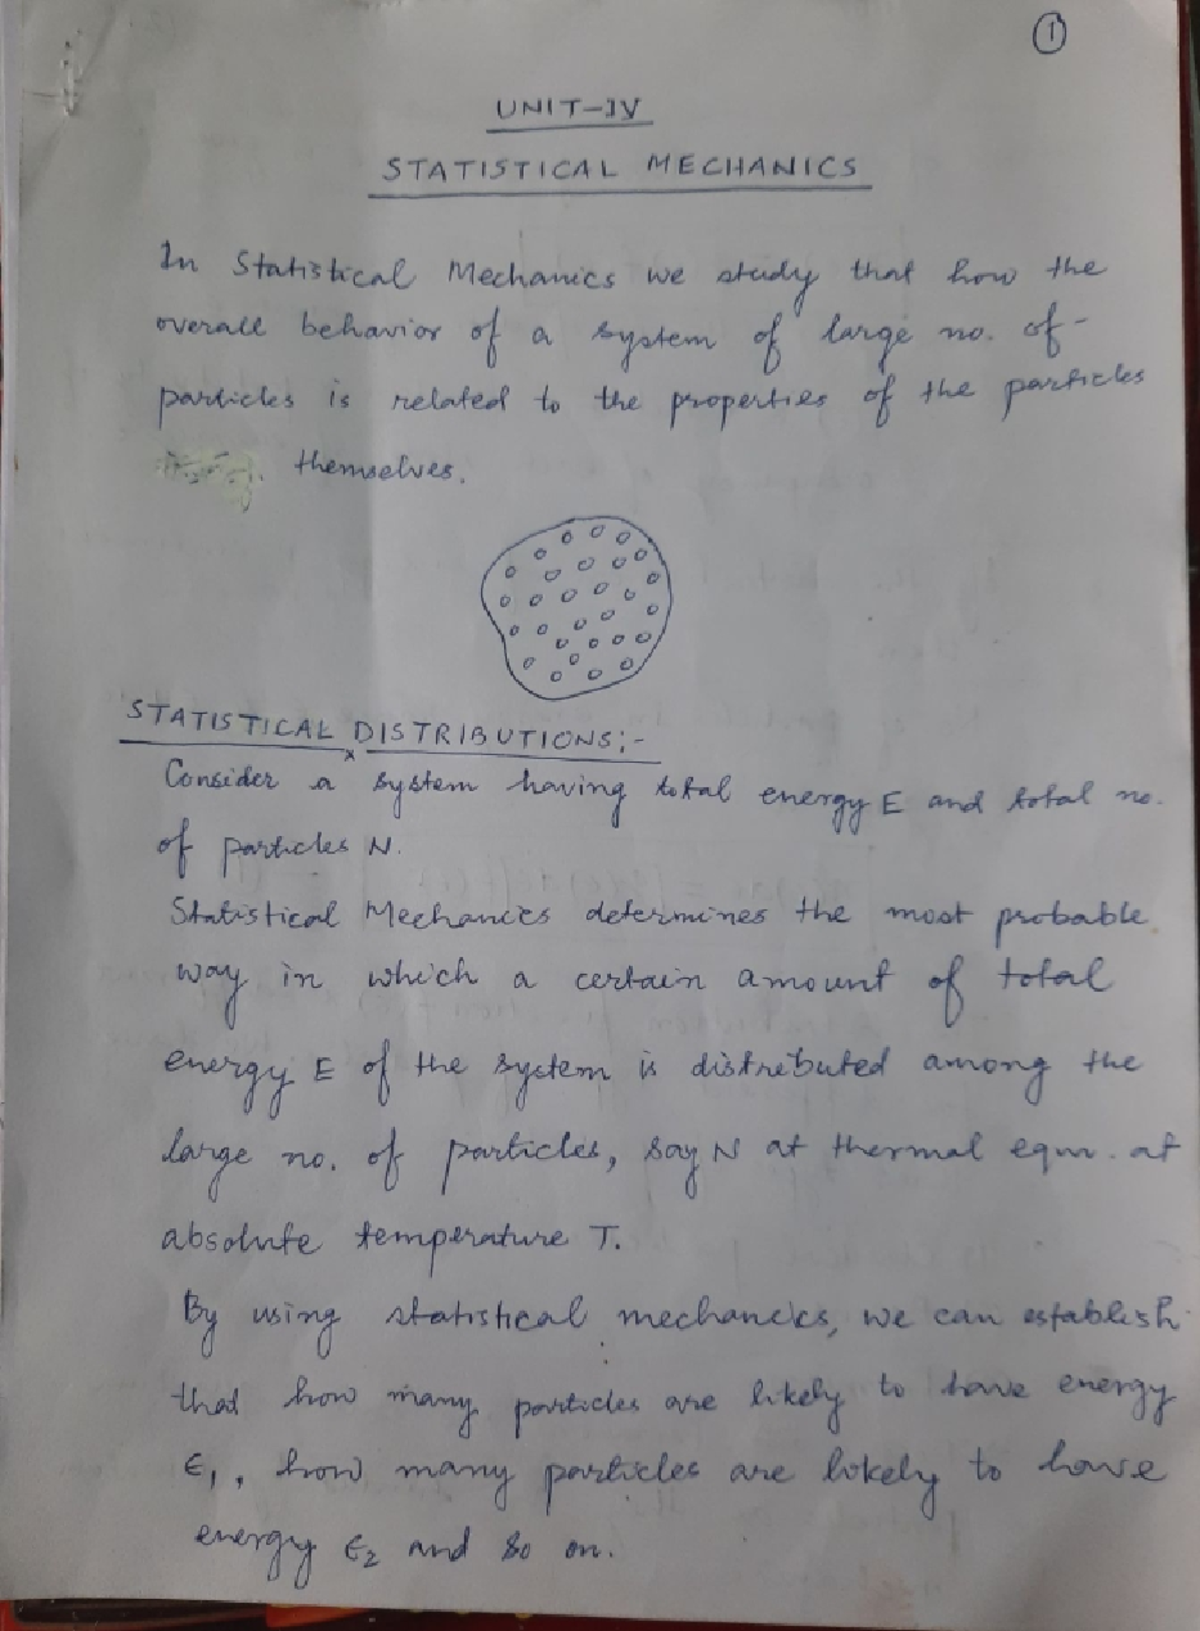 1
UNIT-IV
STATISTICAL MECHANICS
In Statistical Mechanics we study that how the
overall behavior of a system of large no. of-
particles is related to the properties of the particles
themselves.
STATISTICAL DISTRIBUTIONS:-
Consider a system having total energy E and total no.
of particles N.
Statistical Mechanics determines the most probable
way in which a certain amount of total
energy E of the system is distributed among the
large no. of particles, say N at thermal eqm. at
absolute temperature T.
By using statistical mechanics, we can establish
that how many particles are likely to have energy
ϵ₁, how many particles are likely to have
energy ϵ₂ and so on.